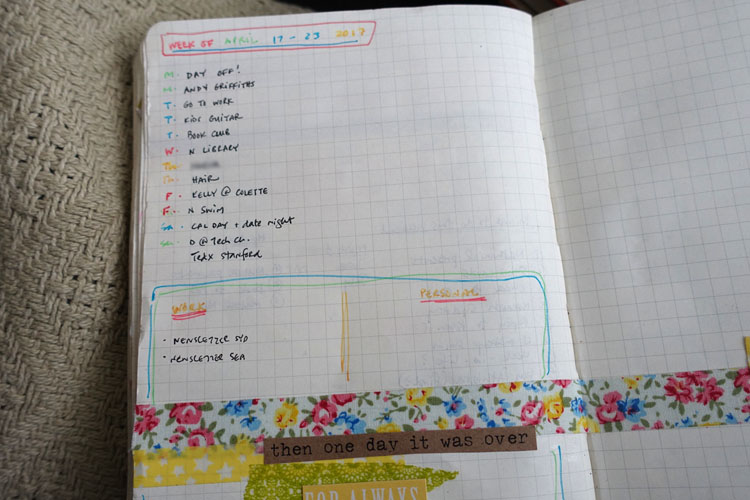 WEEK OF APRIL 17 - 23 2017
M. DAY OFF!
M. ANDY GRIFFITHS
T. GO TO WORK
T. KIDS GUITAR
T. BOOK CLUB
W. N LIBRARY
Th.
Th. HAIR
F. KELLY @ COLETTE
F. N SWIM
Sa. CAL DAY + date night
Su. D @ Tech Ch.
TEDX Stanford
WORK
PERSONAL
· NEWSLETTER SYD
· NEWSLETTER SEA
then one day it was over
FOR ALWAYS